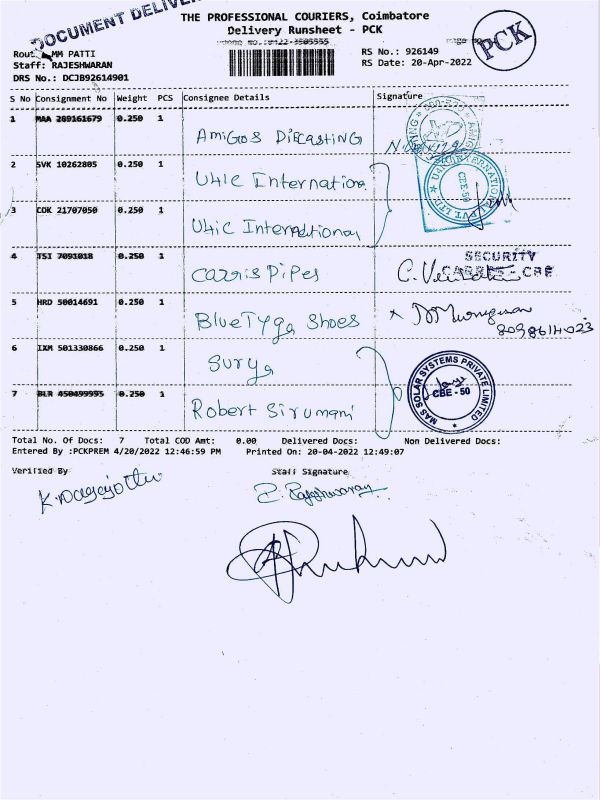 DOCUMENT DELIVER
THE PROFESSIONAL COURIERS, Coimbatore
Delivery Runsheet - PCK
PCK
Route MM PATTI
Staff: RAJESHWARAN
DRS No.: DCJB92614901
RS No.: 926149
RS Date: 20-Apr-2022
S No Consignment No Weight PCS Consignee Details Signature
1 MAA 289161679 0.250 1 AmiGOS DiECASTiNG
2 SVK 10262805 0.250 1 U4ic Internationa
3 COK 21707050 0.250 1 U4ic International
4 TSI 7091018 0.250 1 Carris Pipes
SECURITY
CARRIS - CBE
5 HRD 50014691 0.250 1 BlueTyga Shoes
8098614023
6 IXM 501330866 0.250 1 Surya
7 BLR 450499995 0.250 1 Robert Sirumani
MAS SOLAR SYSTEMS PRIVATE LIMITED
CBE - 50
Total No. Of Docs: 7 Total COD Amt: 0.00 Delivered Docs: Non Delivered Docs:
Entered By :PCKPREM 4/20/2022 12:46:59 PM Printed On: 20-04-2022 12:49:07
Verified By Staff Signature